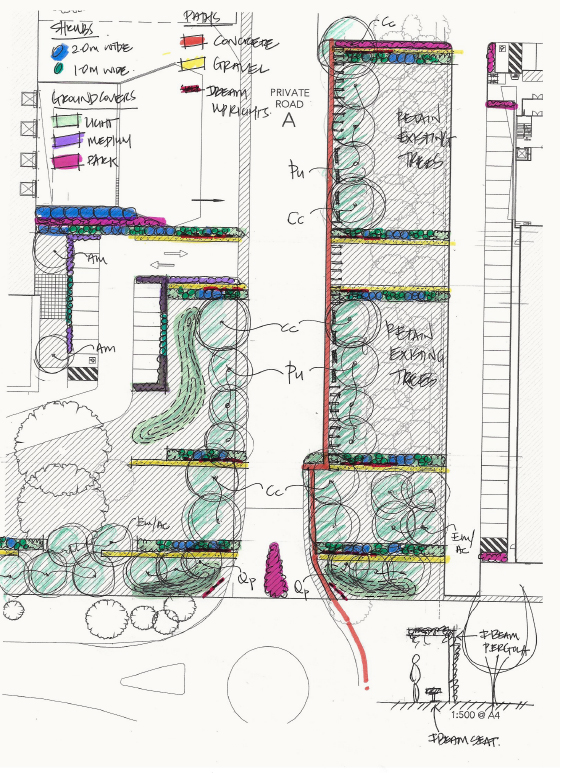 SHRUBS
2.0m WIDE
1.0m WIDE
GROUNDCOVERS
LIGHT
MEDIUM
PARK
PATHS
CONCRETE
GRAVEL
DREAM
UPRIGHTS.
PRIVATE
ROAD
A
Cc
RETAIN
EXISTING
TREES
Pu
Cc
Am
Am
Cc
Pu
RETAIN
EXISTING
TREES
Cc
Em/AC
Em/
AC
Qp
Qp
DREAM
PERGOLA
1:500 @ A4
DREAM SEAT.